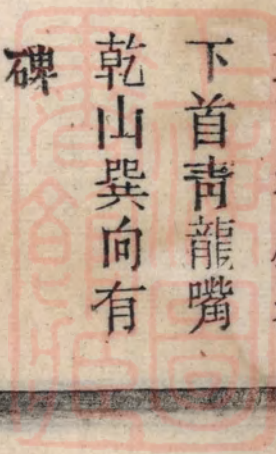 下首靑龍嘴
乾山巽向有
碑